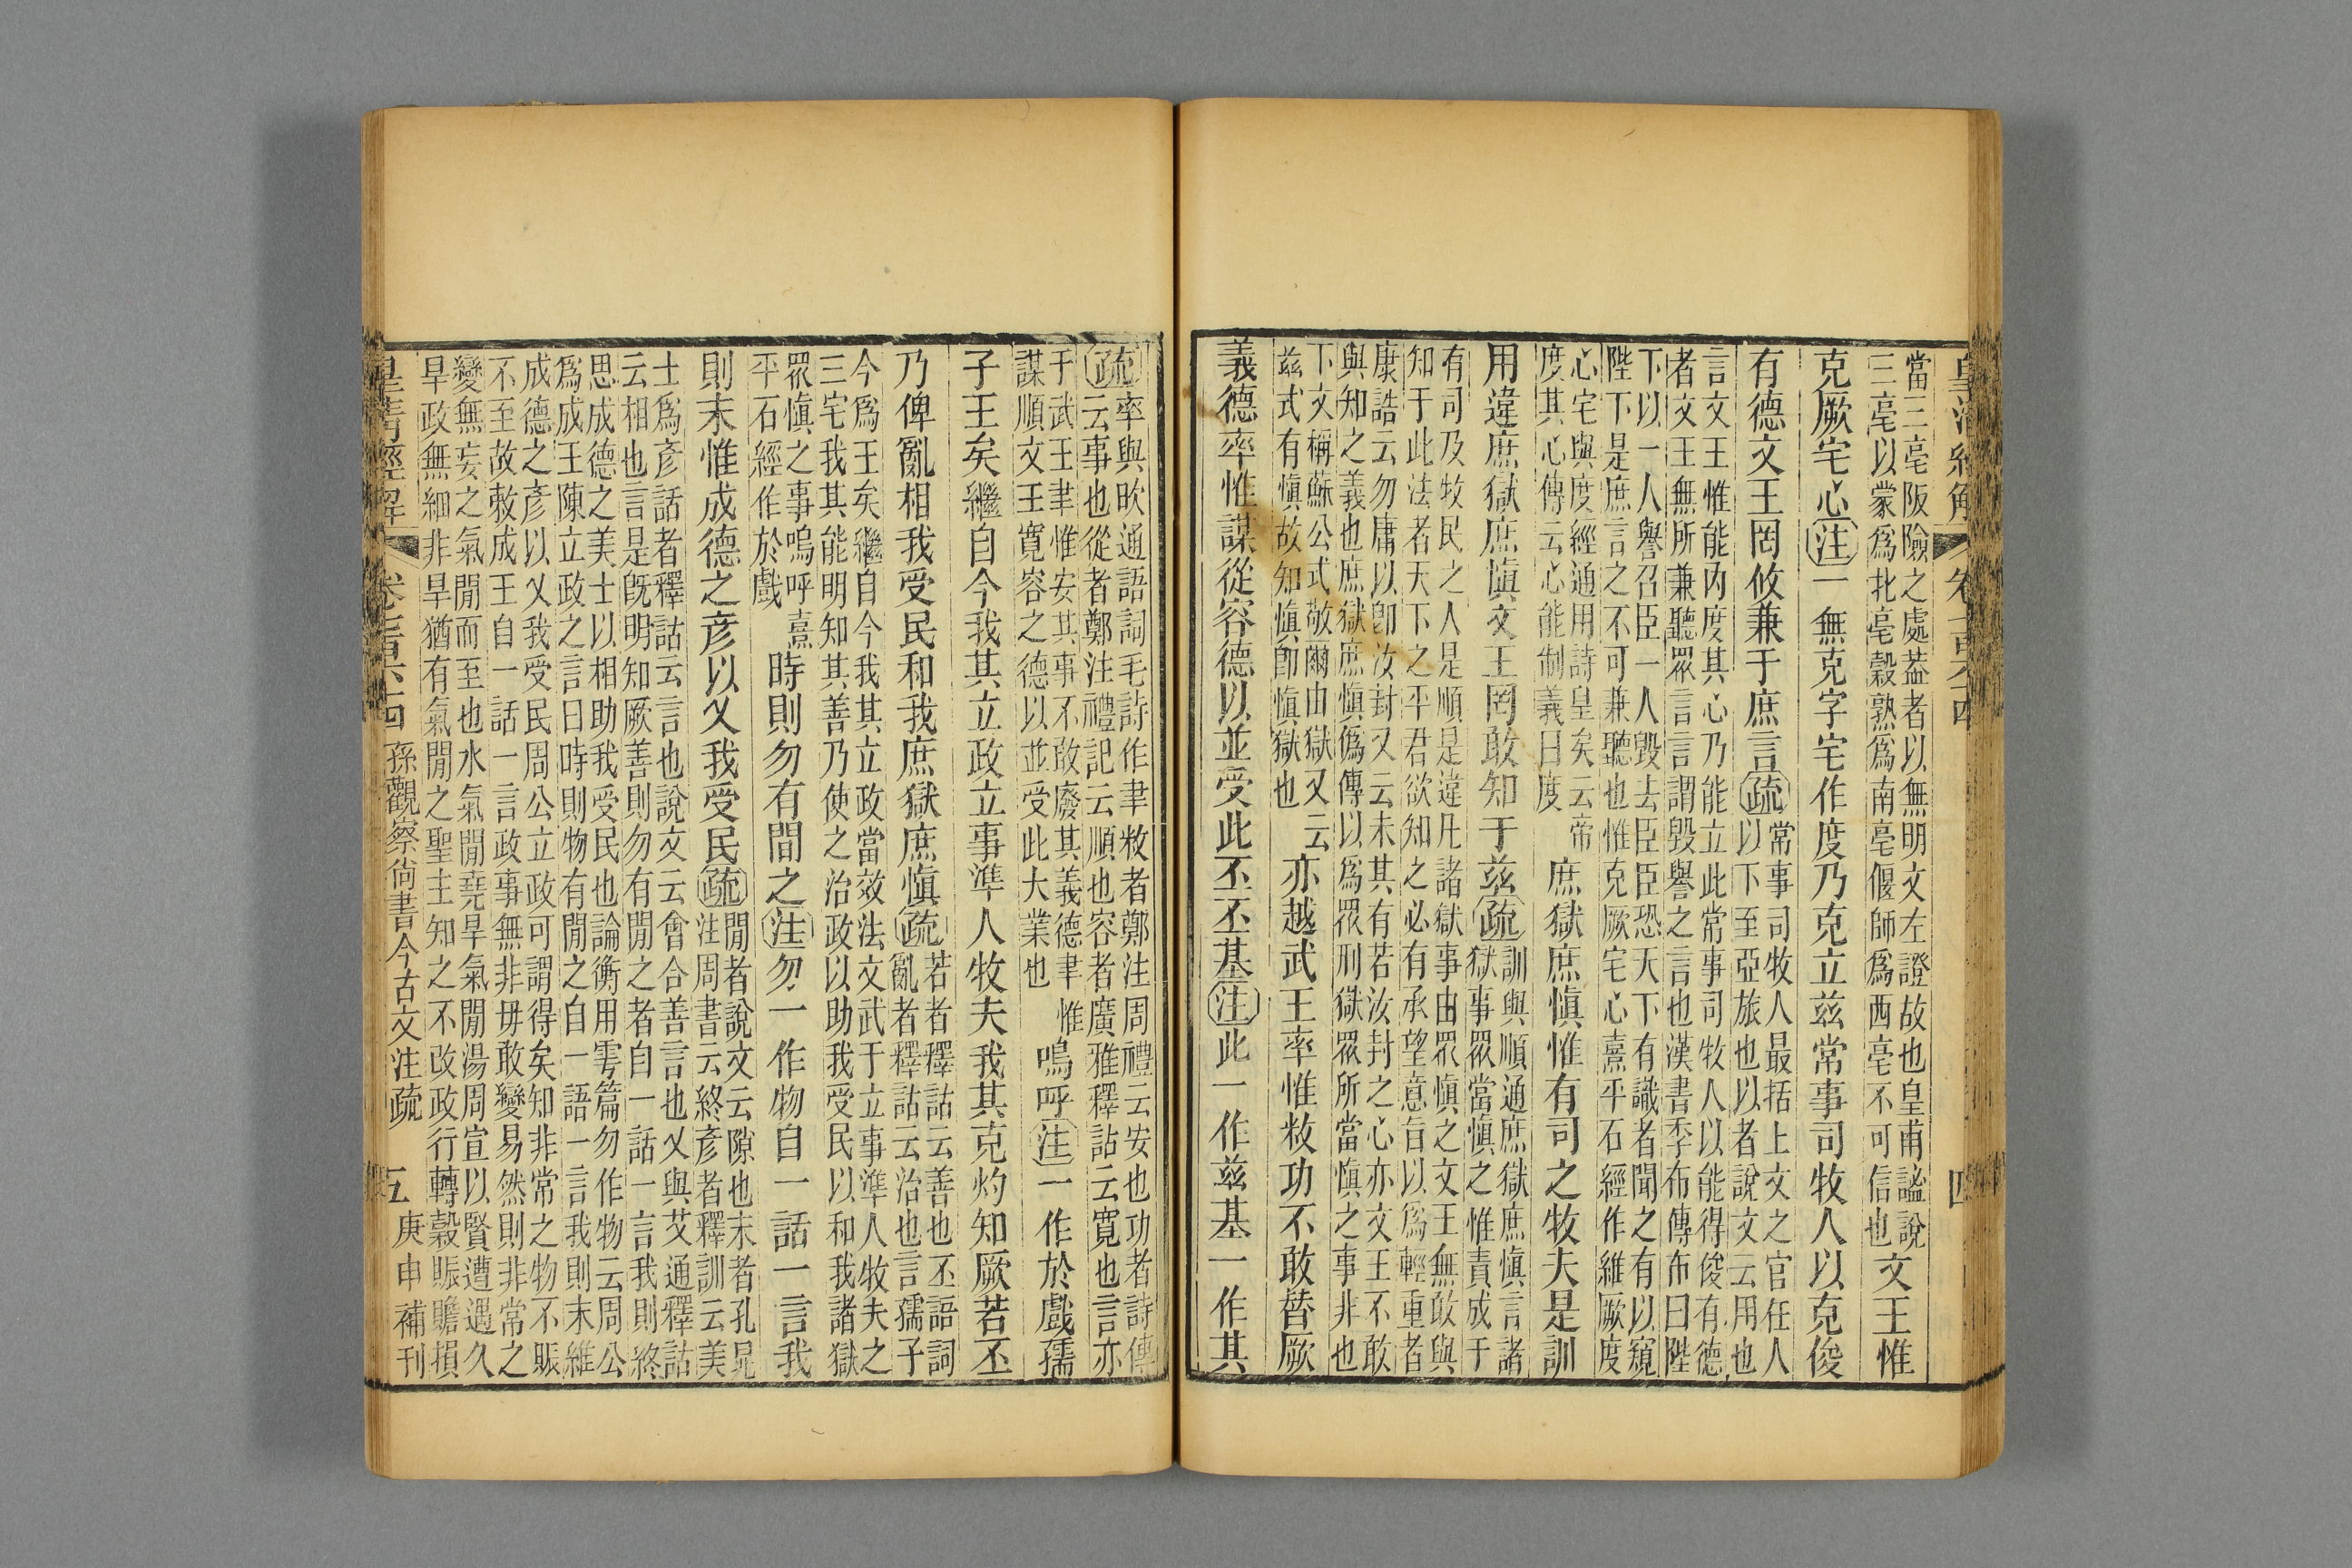 皇清經解 卷七百六十四 四
當三亳阪險之處葢者以無明文左證故也皇甫謐說
三亳以蒙爲北亳穀熟爲南亳偃師爲西亳不可信也
文王惟
克厥宅心注一無克字宅作度乃克立茲常事司牧人以克俊
有德文王罔攸兼于庶言疏
常事司牧人最括上文之官任人
以下至亞旅也以者說文云用也
言文王惟能內度其心乃能立此常事司牧人以能得俊有德
者文王無所兼聽眾言言謂毀譽之言也漢書季布傳布曰陛
下以一人譽召臣一人毀去臣臣恐天下有識者聞之有以窺
陛下是庶言之不可兼聽也惟克厥宅心熹平石經作維厥度
心宅與度經通用詩皇矣云帝
度其心傳云心能制義曰度
庶獄庶愼惟有司之牧夫是訓
用違庶獄庶愼文王罔敢知于茲疏
訓與順通庶獄庶愼言諸
獄事眾當愼之惟責成于
有司及牧民之人是順是違凡諸獄事由眾愼之文王無敢與
知于此法者天下之平君欲知之必有承望意旨以爲輕重者
康誥云勿庸以卽汝封又云未其有若汝封之心亦文王不敢
與知之義也庶獄庶愼僞傳以爲眾刑獄眾所當愼之事非也
下文稱蘇公式敬爾由獄又云
茲式有愼故知愼卽愼獄也
亦越武王率惟敉功不敢替厥
義德率惟謀從容德以並受此丕丕基注此一作茲基一作其
疏
率與欥通語詞毛詩作聿敉者鄭注周禮云安也功者詩傳
云事也從者鄭注禮記云順也容者廣雅釋詁云寬也言亦
于武王聿惟安其事不敢廢其義德聿惟
謀順文王寬容之德以並受此大業也
嗚呼注一作於戲孺
子王矣繼自今我其立政立事準人牧夫我其克灼知厥若丕
乃俾亂相我受民和我庶獄庶愼疏
若者釋詁云善也丕語詞
亂者釋詁云治也言孺子
今爲王矣繼自今我其立政當效法文武于立事準人牧夫之
三宅我其能明知其善乃使之治政以助我受民以和我諸獄
眾愼之事嗚呼熹
平石經作於戲
時則勿有間之注勿一作物自一話一言我
則末惟成德之彥以乂我受民疏
閒者說文云隙也末者孔晁
注周書云終彥者釋訓云美
士爲彥話者釋詁云言也說文云會合善言也乂與艾通釋詁
云相也言是旣明知厥善則勿有閒之者自一話一言我則終
思成德之美士以相助我受民也論衡用雩篇勿作物云周公
爲成王陳立政之言曰時則物有閒之自一語一言我則末維
成德之彥以乂我受民周公立政可謂得矣知非常之物不賑
不至故敕成王自一話一言政事無非毋敢變易然則非常之
變無妄之氣閒而至也水氣閒堯旱氣閒湯周宣以賢遭遇久
旱政無細非旱猶有氣閒之聖主知之不改政行轉穀賑贍損
皇清經解 卷七百六十四 孫觀察尙書今古文注疏 五 庚申補刊